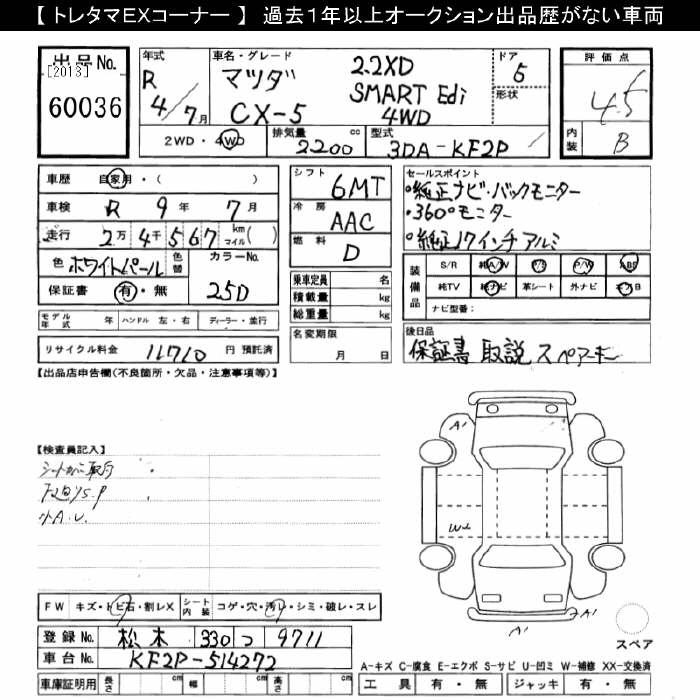 【 トレタマEXコーナー 】 過去１年以上オークション出品歴がない車両
出品No.
[2013]
60036
年式
R
4/7月
車名・グレード
マツダ
CX-5
2.2XD
SMART Edi
4WD
ドア
5
形状
評価点
4.5
内装
B
2WD・4WD
排気量
2200 cc
型式
3DA-KF2P
車歴 自家用・( )
車検 R 9年 7月
走行 2万 4千 5 6 7 km マイル( )
色 ホワイトパール
色替
カラーNo.
25D
保証書 有・無
シフト 6MT
冷房 AAC
燃料 D
乗車定員 名
積載量 kg
総重量 kg
セールスポイント
・純正ナビ・バックモニター
・360°モニター
・純正17インチアルミ
装備品
S/R 純A/W P/S P/W ABS
純TV 純ナビ 革シート 外ナビ エアB
ナビ型番:
モデル年式 年 ハンドル 左・右 ディーラー・並行
名変期限
月 日
後日品
保証書 取説 スペアキー
リサイクル料金 11710 円 預託済
【出品店申告欄(不良箇所・欠品・注意事項等)】
【検査員記入】
シートカバー取付
小A.U.
A1
W2
A1
2A1
スペア
FW キズ・トビ石・割レX
シート内装 コゲ・穴・汚レ・シミ・破レ・スレ
登録No. 松本 330 つ 9711
車台No. KF2P-514272
A-キズ C-腐食 E-エクボ S-サビ U-凹ミ W-補修 XX-交換済
車庫証明用 長さ cm 幅 cm 高さ cm
工具 有・無 ジャッキ 有・無